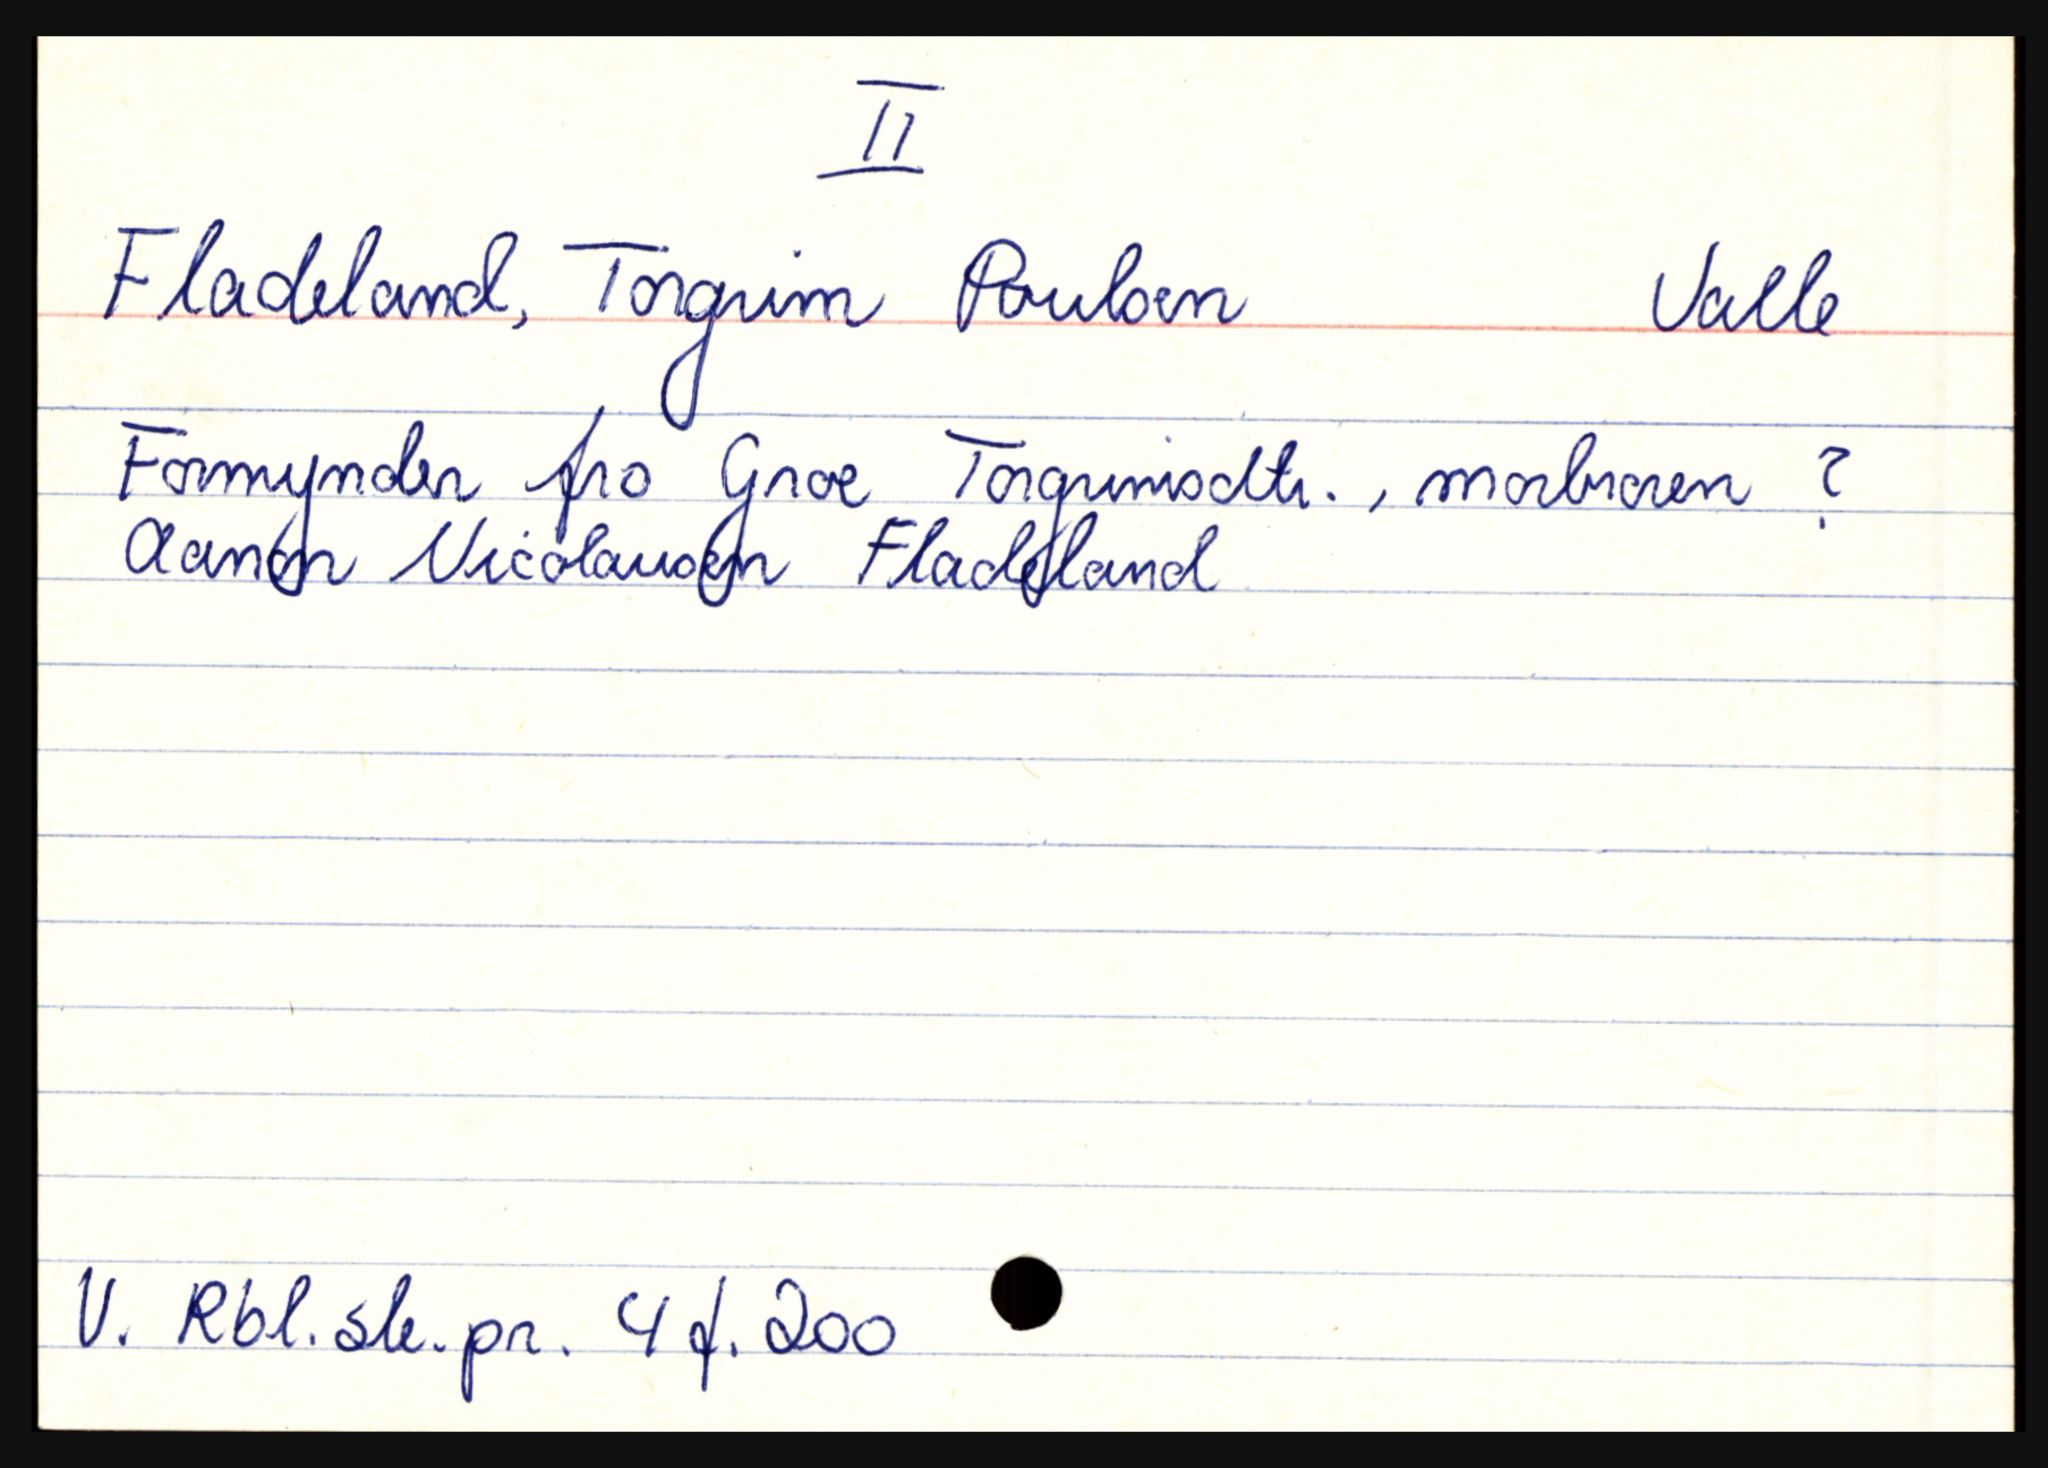 II
Fladeland, Torgrim Poulsen Valle
Formynder fro Groe Torgrimsdtr., morbroren ?
Aanon Nicolausen Fladeland
V. Rbl. sk. pr. 4 f. 200